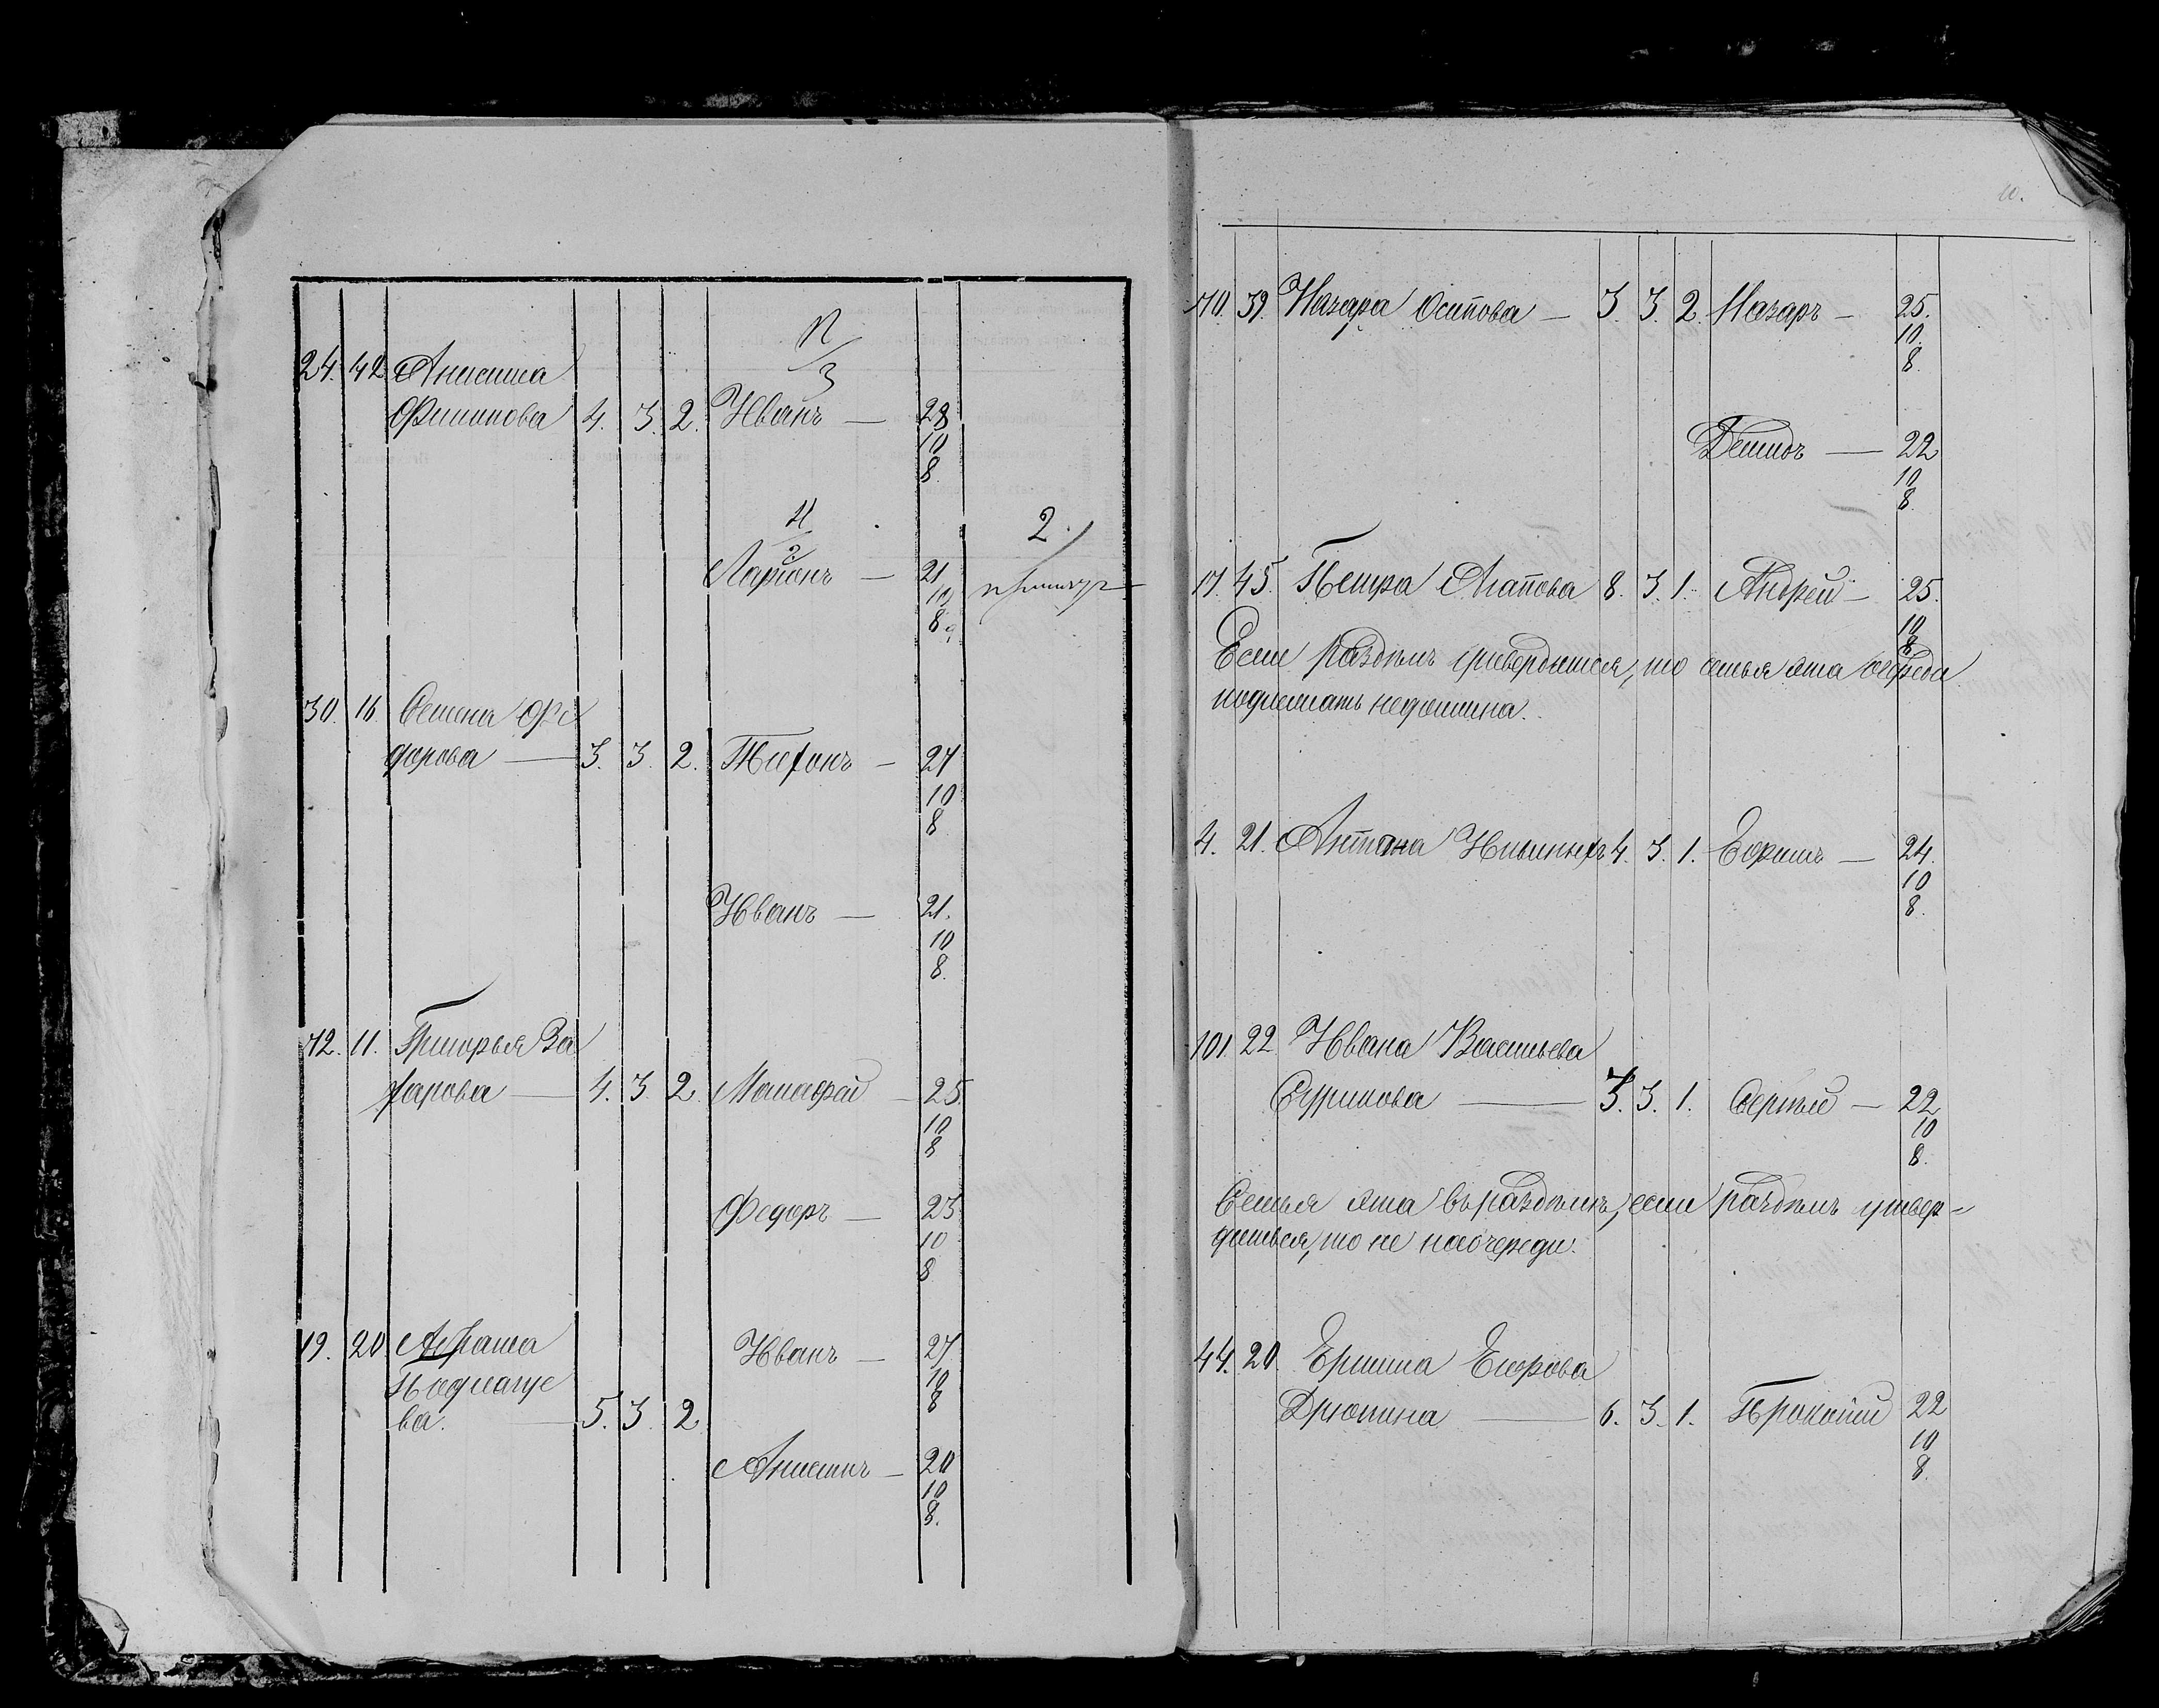 24. 42 Анисима
Филипова 4. 3. 2. Иванъ — 28
10
8.
2.
Ларіонъ — 21
10
8
30. 16 Семена Фе
дорова — 3. 3. 2. Тихонъ — 27
10
8
Иванъ — 21.
10
8.
72. 11. Григорья За
харова — 4. 3. 2. Малафей — 25
10
8
Федоръ — 23
10
8
19. 20 Абрама Иванъ — 27
10
ва. — 5. 3. 2 8
Анисимъ — 20
10
8.
70. 39. Назара Осипова — 3. 3. 2. Назаръ — 25.
10.
8.
Демидъ — 22
10
8.
17. 45. Петра Агапова 8. 3. 1. Андрей — 25.
10
8
Если раздѣлъ утвердится, то семья эта очереди
подлежать недолжна.
4. 21. Антона Ильиныхъ 4. 3. 1. Ефимъ — 24.
10
8.
101. 22. Ивана Васильева
Сурикова — 3. 3. 1. Сергѣй — 22
10
8.
Семья эта въ раздѣлѣ, если раздѣлъ утвер-
дится, то не наочереди.
44. 20. Ермила Егорова
Дрюпина — 6. 3. 1. Прокопій 22
10
8.